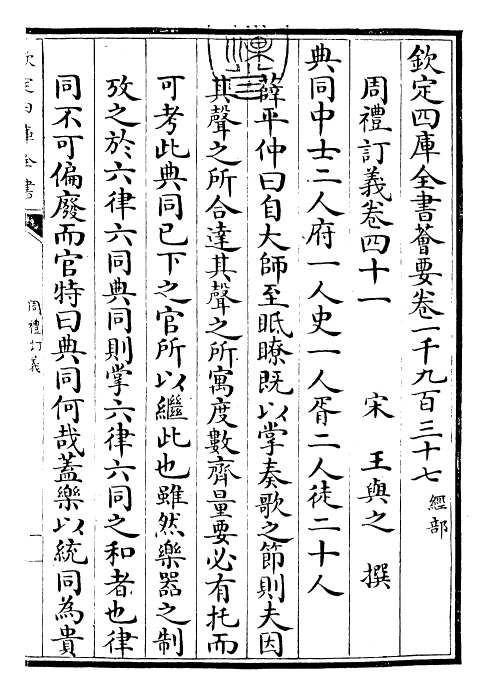 欽定四庫全書薈要卷一千九百三十七 經部
周禮訂義卷四十一 宋 王與之 撰
典同中士二人府一人史一人胥二人徒二十人
薛平仲曰自大師至眡瞭既以掌奏歌之節則夫因
其聲之所合達其聲之所寓度數齊量要必有托而
可考此典同已下之官所以繼此也雖然樂器之制
攷之於六律六同典同則掌六律六同之和者也律
同不可偏廢而官特曰典同何哉蓋樂以統同為貴
欽定四庫全書
周禮訂義
一